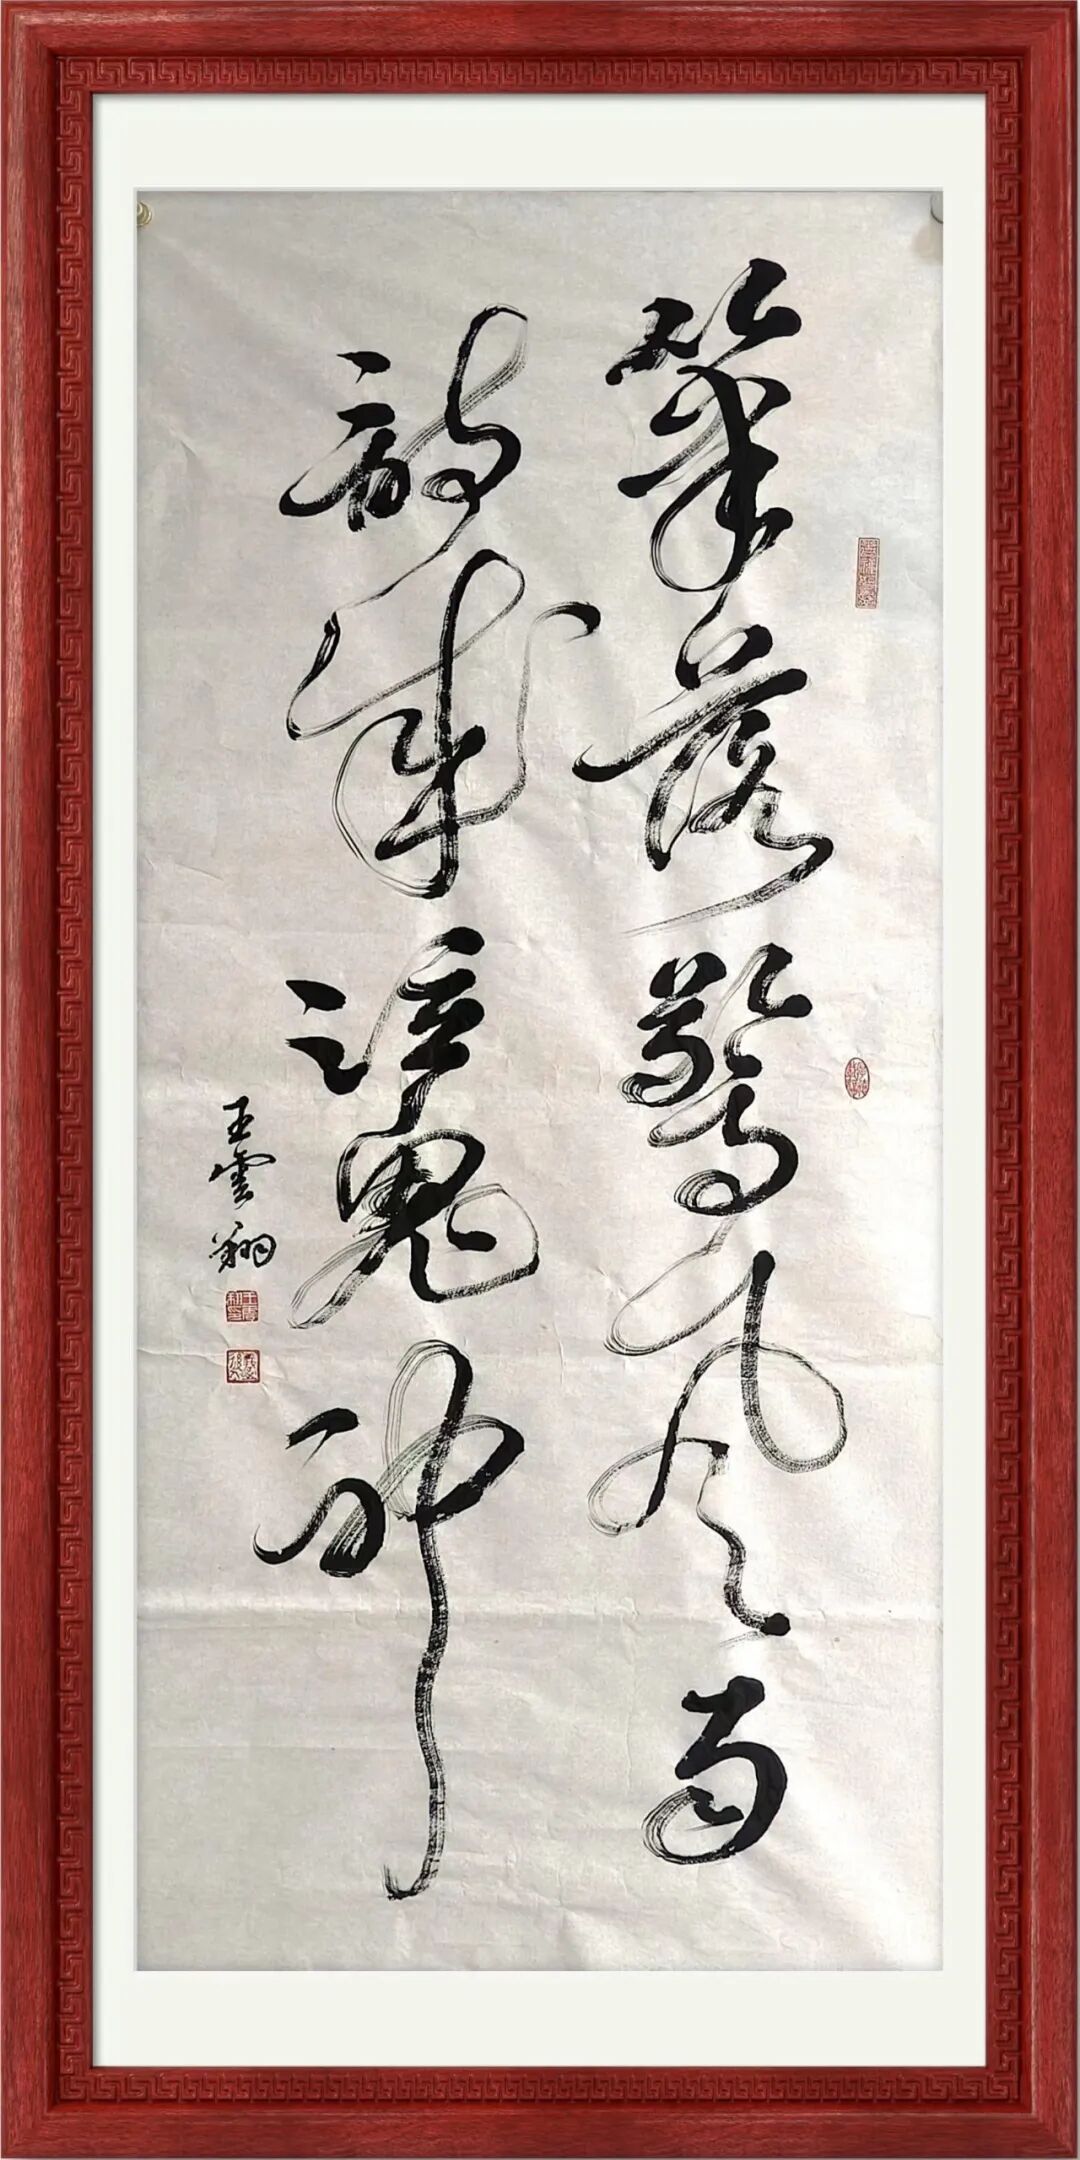 筆落驚風雨
詩成泣鬼神
王雲翔